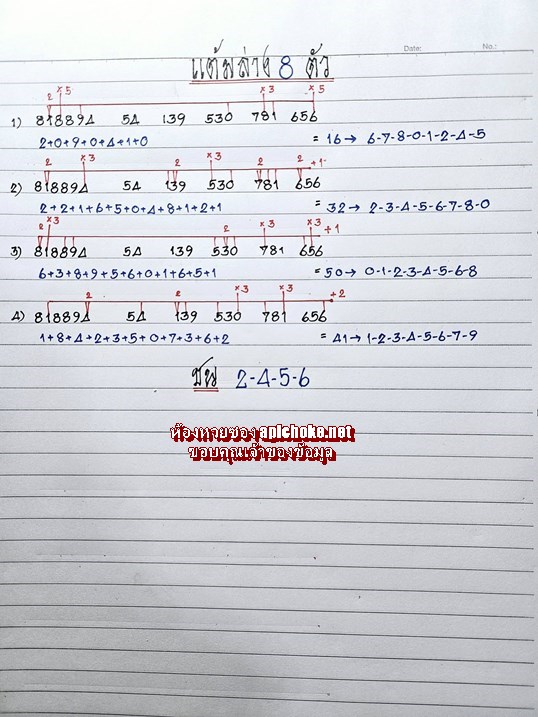 Date: No.:
แต้มล่าง 8 ตัว
2 ×5 ×3 ×5
1) 818894 54 139 530 781 656
2+0+9+0+4+1+0 = 16 → 6-7-8-0-1-2-4-5
2 ×3 2 ×3 2 2 +1
2) 818894 54 139 530 781 656
2+2+1+6+5+0+4+8+1+2+1 = 32 → 2-3-4-5-6-7-8-0
2 ×3 2 ×3 ×3 +1
3) 818894 54 139 530 781 656
6+3+8+9+5+6+0+1+6+5+1 = 50 → 0-1-2-3-4-5-6-8
2 2 ×3 ×3 +2
4) 818894 54 139 530 781 656
1+8+4+2+3+5+0+7+3+6+2 = 41 → 1-2-3-4-5-6-7-9
ชน 2-4-5-6
ห้องหวยซอง apichoke.net
ขอบคุณเจ้าของข้อมูล